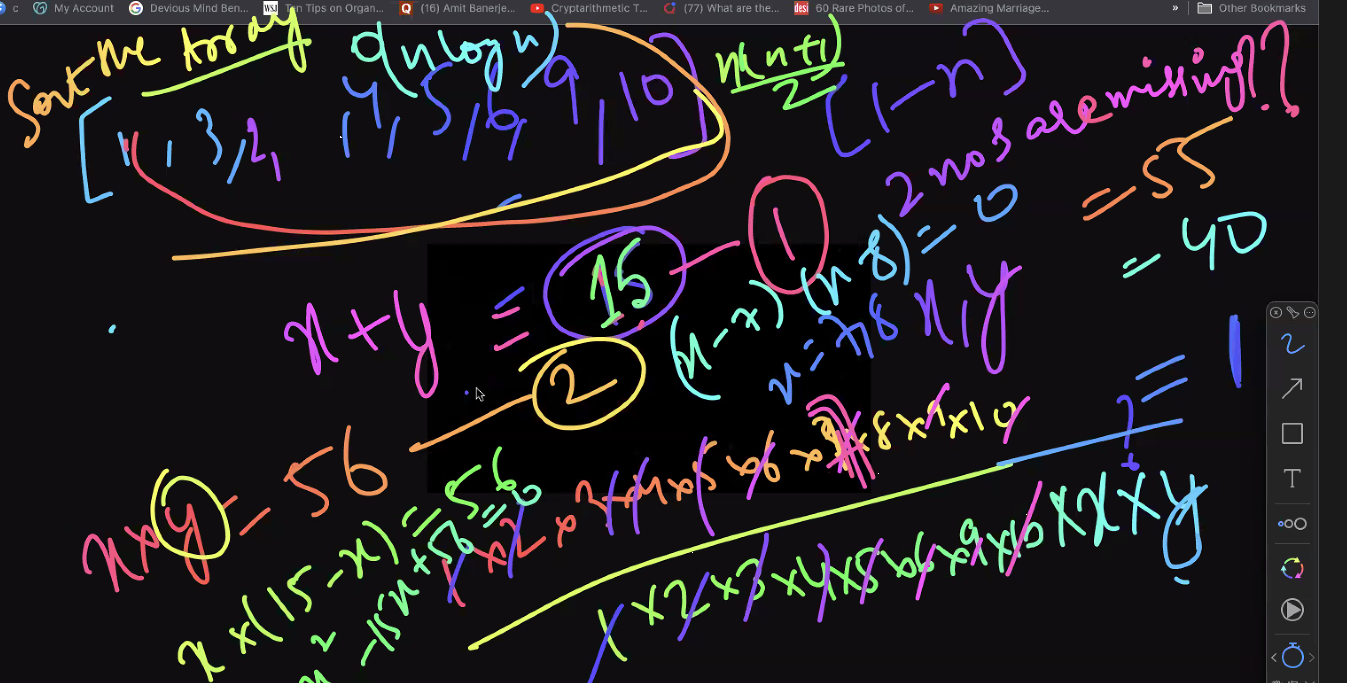 My Account
Devious Mind Ben...
Ten Tips on Organ...
(16) Amit Banerje...
Cryptarithmetic T...
(77) What are the...
60 Rare Photos of...
Amazing Marriage...
»
Other Bookmarks
Sort the Array O(n log n)
n(n+1)
2
[1-n]
[1, 3, 2, 4, 5, 6, 9, 10]
2 nos are missing??
= 55
= 40
x + y = 15 - 1
(x-7)(x-8) = 0
x = 7, 8
x, y
2
x × y = 56
1×2×3×4×5×6×7×8×9×10
1×2×3×4×5×6×9×10×x×y
= 1
x × (15-x) = 56
x² - 15x + 56 = 0
T